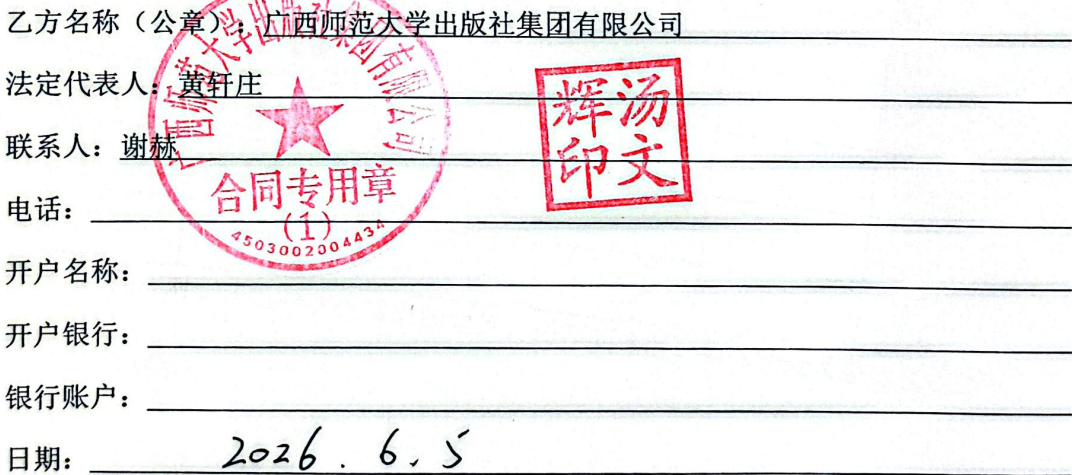 乙方名称（公章）：广西师范大学出版社集团有限公司
法定代表人：黄轩庄
联系人：谢赫
电话：
开户名称：
开户银行：
银行账户：
日期：2026.6.5
广西师范大学出版社集团有限公司
合同专用章
(1)
4503002004434
汤文辉印